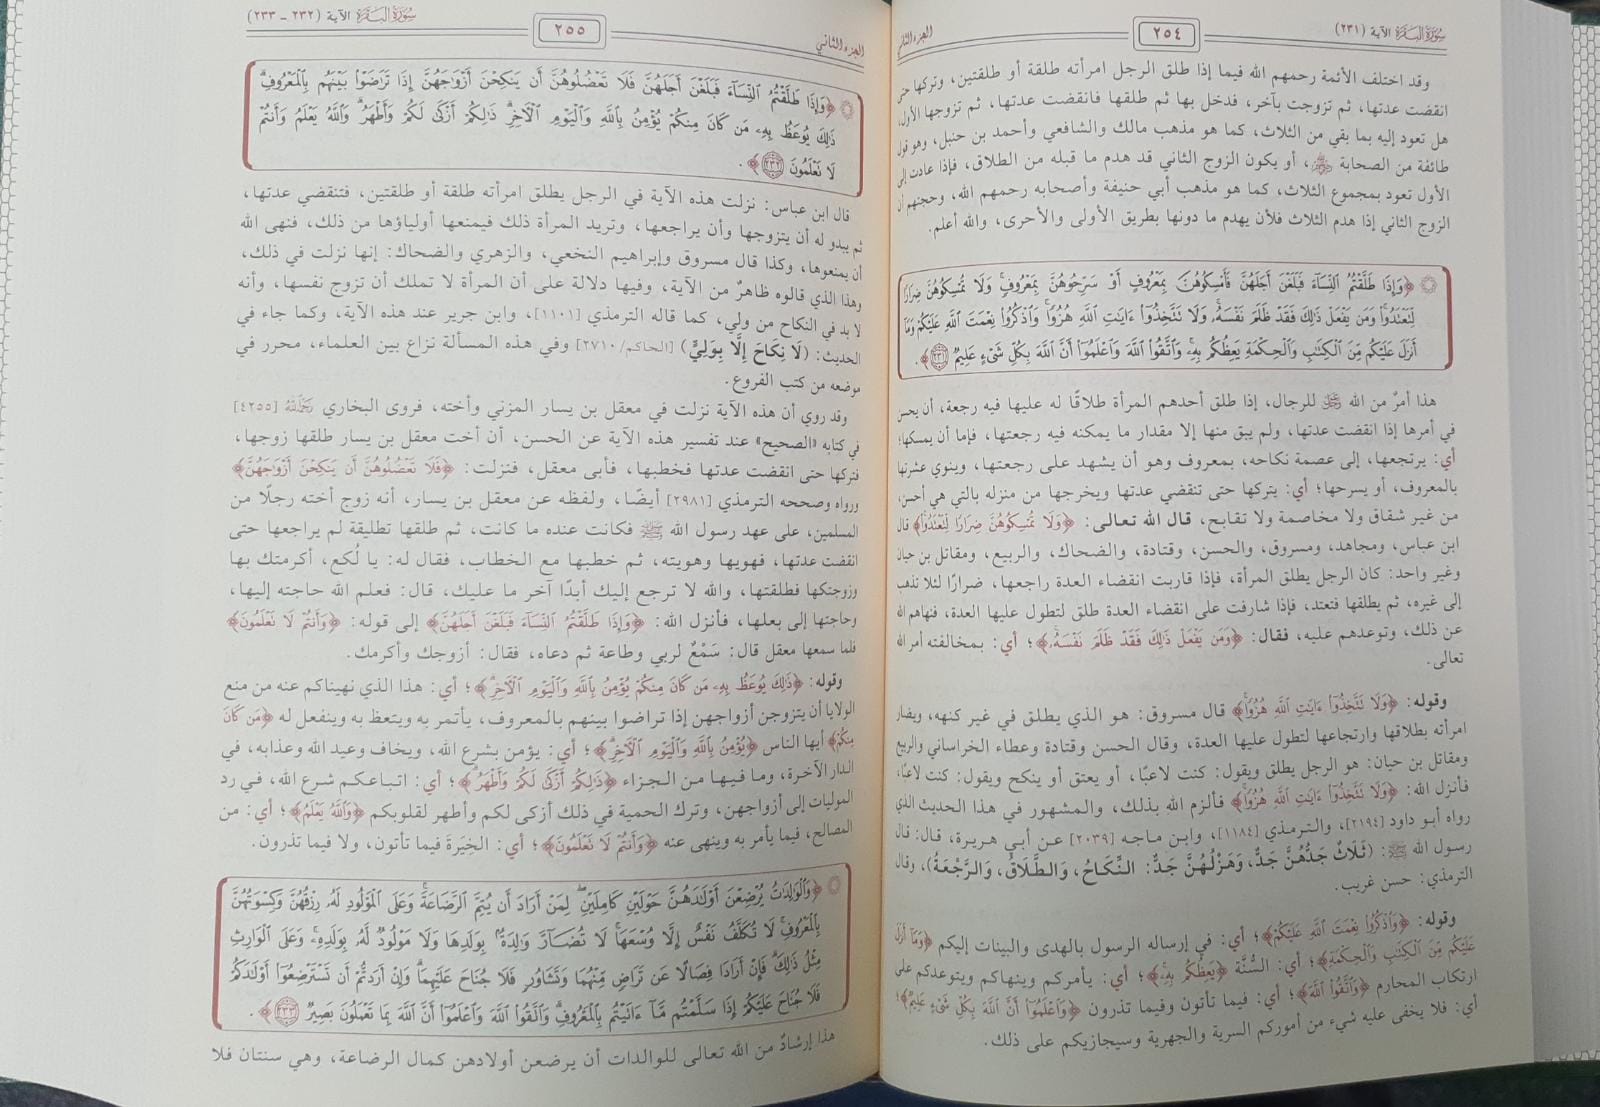 سُورَةُ البَقَرَةِ الآية (٢٣١)
٢٥٤
الجزء الثاني
وقد اختلف الأئمة رحمهم الله فيما إذا طلق الرجل امرأته طلقة أو طلقتين، وتركها حتى
انقضت عدتها، ثم تزوجت بآخر، فدخل بها ثم طلقها فانقضت عدتها، ثم تزوجها الأول،
هل تعود إليه بما بقي من الثلاث، كما هو مذهب مالك والشافعي وأحمد بن حنبل، وهو قول
طائفة من الصحابة ﵃، أو يكون الزوج الثاني قد هدم ما قبله من الطلاق، فإذا عادت إلى
الأول تعود بمجموع الثلاث، كما هو مذهب أبي حنيفة وأصحابه رحمهم الله، وحجتهم أن
الزوج الثاني إذا هدم الثلاث فلأن يهدم ما دونها بطريق الأولى والأحرى، والله أعلم.
﴿وَإِذَا طَلَّقْتُمُ النِّسَاءَ فَبَلَغْنَ أَجَلَهُنَّ فَأَمْسِكُوهُنَّ بِمَعْرُوفٍ أَوْ سَرِّحُوهُنَّ بِمَعْرُوفٍ وَلَا تُمْسِكُوهُنَّ ضِرَارًا
لِتَعْتَدُوا وَمَن يَفْعَلْ ذَٰلِكَ فَقَدْ ظَلَمَ نَفْسَهُ وَلَا تَتَّخِذُوا آيَاتِ اللَّهِ هُزُوًا وَاذْكُرُوا نِعْمَتَ اللَّهِ عَلَيْكُمْ وَمَا
أَنزَلَ عَلَيْكُم مِّنَ الْكِتَابِ وَالْحِكْمَةِ يَعِظُكُم بِهِ وَاتَّقُوا اللَّهَ وَاعْلَمُوا أَنَّ اللَّهَ بِكُلِّ شَيْءٍ عَلِيمٌ ٢٣١﴾.
هذا أمرٌ من الله ﷿ للرجال، إذا طلق أحدهم المرأة طلاقًا له عليها فيه رجعة، أن يحسن
في أمرها إذا انقضت عدتها، ولم يبق منها إلا مقدار ما يمكنه فيه رجعتها، فإما أن يمسكها؛
أي: يرتجعها، إلى عصمة نكاحه، بمعروف وهو أن يشهد على رجعتها، وينوي عشرتها
بالمعروف، أو يسرحها؛ أي: يتركها حتى تنقضي عدتها ويخرجها من منزله بالتي هي أحسن،
من غير شقاق ولا مخاصمة ولا تقابح، قال الله تعالى: ﴿وَلَا تُمْسِكُوهُنَّ ضِرَارًا لِتَعْتَدُوا﴾ قال
ابن عباس، ومجاهد، ومسروق، والحسن، وقتادة، والضحاك، والربيع، ومقاتل بن حيان
وغير واحد: كان الرجل يطلق المرأة، فإذا قاربت انقضاء العدة راجعها، ضرارًا لئلا تذهب
إلى غيره، ثم يطلقها فتعتد، فإذا شارفت على انقضاء العدة طلق لتطول عليها العدة، فنهاهم الله
عن ذلك، وتوعدهم عليه، فقال: ﴿وَمَن يَفْعَلْ ذَٰلِكَ فَقَدْ ظَلَمَ نَفْسَهُ﴾؛ أي: بمخالفته أمر الله
تعالى.
وقوله: ﴿وَلَا تَتَّخِذُوا آيَاتِ اللَّهِ هُزُوًا﴾ قال مسروق: هو الذي يطلق في غير كنهه، ويضار
امرأته بطلاقها وارتجاعها لتطول عليها العدة، وقال الحسن وقتادة وعطاء الخراساني والربيع
ومقاتل بن حيان: هو الرجل يطلق ويقول: كنت لاعبًا، أو يعتق أو ينكح ويقول: كنت لاعبًا،
فأنزل الله: ﴿وَلَا تَتَّخِذُوا آيَاتِ اللَّهِ هُزُوًا﴾ فألزم الله بذلك، والمشهور في هذا الحديث الذي
رواه أبو داود [٢١٩٤]، والترمذي [١١٨٤]، وابن ماجه [٢٠٣٩] عن أبي هريرة، قال: قال
رسول الله ﷺ: (ثَلَاثٌ جَدُّهُنَّ جَدٌّ، وَهَزْلُهُنَّ جَدٌّ: النِّكَاحُ، وَالطَّلَاقُ، وَالرَّجْعَةُ)، وقال
الترمذي: حسن غريب.
وقوله: ﴿وَاذْكُرُوا نِعْمَتَ اللَّهِ عَلَيْكُمْ﴾؛ أي: في إرساله الرسول بالهدى والبينات إليكم ﴿وَمَا أَنزَلَ
عَلَيْكُم مِّنَ الْكِتَابِ وَالْحِكْمَةِ﴾؛ أي: السُّنَّة ﴿يَعِظُكُم بِهِ﴾؛ أي: يأمركم وينهاكم ويتوعدكم على
ارتكاب المحارم ﴿وَاتَّقُوا اللَّهَ﴾؛ أي: فيما تأتون وفيما تذرون ﴿وَاعْلَمُوا أَنَّ اللَّهَ بِكُلِّ شَيْءٍ عَلِيمٌ﴾؛
أي: فلا يخفى عليه شيء من أموركم السرية والجهرية وسيجازيكم على ذلك.
الجزء الثاني
٢٥٥
سُورَةُ البَقَرَةِ الآية (٢٣٢ - ٢٣٣)
﴿وَإِذَا طَلَّقْتُمُ النِّسَاءَ فَبَلَغْنَ أَجَلَهُنَّ فَلَا تَعْضُلُوهُنَّ أَن يَنكِحْنَ أَزْوَاجَهُنَّ إِذَا تَرَاضَوْا بَيْنَهُم بِالْمَعْرُوفِ
ذَٰلِكَ يُوعَظُ بِهِ مَن كَانَ مِنكُمْ يُؤْمِنُ بِاللَّهِ وَالْيَوْمِ الْآخِرِ ذَٰلِكُمْ أَزْكَىٰ لَكُمْ وَأَطْهَرُ وَاللَّهُ يَعْلَمُ وَأَنتُمْ
لَا تَعْلَمُونَ ٢٣٢﴾.
قال ابن عباس: نزلت هذه الآية في الرجل يطلق امرأته طلقة أو طلقتين، فتنقضي عدتها،
ثم يبدو له أن يتزوجها وأن يراجعها، وتريد المرأة ذلك فيمنعها أولياؤها من ذلك، فنهى الله
أن يمنعوها، وكذا قال مسروق وإبراهيم النخعي، والزهري والضحاك: إنها نزلت في ذلك،
وهذا الذي قالوه ظاهرٌ من الآية، وفيها دلالة على أن المرأة لا تملك أن تزوج نفسها، وأنه
لا بد في النكاح من ولي، كما قاله الترمذي [١١٠١]، وابن جرير عند هذه الآية، وكما جاء في
الحديث: (لَا نِكَاحَ إِلَّا بِوَلِيٍّ) [الحاكم/٢٧١٠] وفي هذه المسألة نزاع بين العلماء، محرر في
موضعه من كتب الفروع.
وقد روي أن هذه الآية نزلت في معقل بن يسار المزني وأخته، فروى البخاري رحمه الله [٤٢٥٥]
في كتابه «الصحيح» عند تفسير هذه الآية عن الحسن، أن أخت معقل بن يسار طلقها زوجها،
فتركها حتى انقضت عدتها فخطبها، فأبى معقل، فنزلت: ﴿فَلَا تَعْضُلُوهُنَّ أَن يَنكِحْنَ أَزْوَاجَهُنَّ﴾
ورواه وصححه الترمذي [٢٩٨١] أيضًا، ولفظه عن معقل بن يسار، أنه زوج أخته رجلًا من
المسلمين، على عهد رسول الله ﷺ فكانت عنده ما كانت، ثم طلقها تطليقة لم يراجعها حتى
انقضت عدتها، فهويها وهويته، ثم خطبها مع الخطاب، فقال له: يا لُكع، أكرمتك بها
وزوجتكها فطلقتها، والله لا ترجع إليك أبدًا آخر ما عليك، قال: فعلم الله حاجته إليها،
وحاجتها إلى بعلها، فأنزل الله: ﴿وَإِذَا طَلَّقْتُمُ النِّسَاءَ فَبَلَغْنَ أَجَلَهُنَّ﴾ إلى قوله: ﴿وَأَنتُمْ لَا تَعْلَمُونَ﴾
فلما سمعها معقل قال: سَمْعٌ لربي وطاعة ثم دعاه، فقال: أزوجك وأكرمك.
وقوله: ﴿ذَٰلِكَ يُوعَظُ بِهِ مَن كَانَ مِنكُمْ يُؤْمِنُ بِاللَّهِ وَالْيَوْمِ الْآخِرِ﴾؛ أي: هذا الذي نهيناكم عنه من منع
الولايا أن يتزوجن أزواجهن إذا تراضوا بينهم بالمعروف، يأتمر به ويتعظ به وينفعل له ﴿مَن كَانَ
مِنكُمْ﴾ أيها الناس ﴿يُؤْمِنُ بِاللَّهِ وَالْيَوْمِ الْآخِرِ﴾؛ أي: يؤمن بشرع الله، ويخاف وعيد الله وعذابه، في
الدار الآخرة، وما فيها من الجزاء ﴿ذَٰلِكُمْ أَزْكَىٰ لَكُمْ وَأَطْهَرُ﴾؛ أي: اتباعكم شرع الله، في رد
الموليات إلى أزواجهن، وترك الحمية في ذلك أزكى لكم وأطهر لقلوبكم ﴿وَاللَّهُ يَعْلَمُ﴾؛ أي: من
المصالح، فيما يأمر به وينهى عنه ﴿وَأَنتُمْ لَا تَعْلَمُونَ﴾؛ أي: الخِيَرَةَ فيما تأتون، ولا فيما تذرون.
﴿وَالْوَالِدَاتُ يُرْضِعْنَ أَوْلَادَهُنَّ حَوْلَيْنِ كَامِلَيْنِ لِمَنْ أَرَادَ أَن يُتِمَّ الرَّضَاعَةَ وَعَلَى الْمَوْلُودِ لَهُ رِزْقُهُنَّ وَكِسْوَتُهُنَّ
بِالْمَعْرُوفِ لَا تُكَلَّفُ نَفْسٌ إِلَّا وُسْعَهَا لَا تُضَارَّ وَالِدَةٌ بِوَلَدِهَا وَلَا مَوْلُودٌ لَّهُ بِوَلَدِهِ وَعَلَى الْوَارِثِ
مِثْلُ ذَٰلِكَ فَإِنْ أَرَادَا فِصَالًا عَن تَرَاضٍ مِّنْهُمَا وَتَشَاوُرٍ فَلَا جُنَاحَ عَلَيْهِمَا وَإِنْ أَرَدتُّمْ أَن تَسْتَرْضِعُوا أَوْلَادَكُمْ
فَلَا جُنَاحَ عَلَيْكُمْ إِذَا سَلَّمْتُم مَّا آتَيْتُم بِالْمَعْرُوفِ وَاتَّقُوا اللَّهَ وَاعْلَمُوا أَنَّ اللَّهَ بِمَا تَعْمَلُونَ بَصِيرٌ ٢٣٣﴾.
هذا إرشادٌ من الله تعالى للوالدات أن يرضعن أولادهن كمال الرضاعة، وهي سنتان فلا